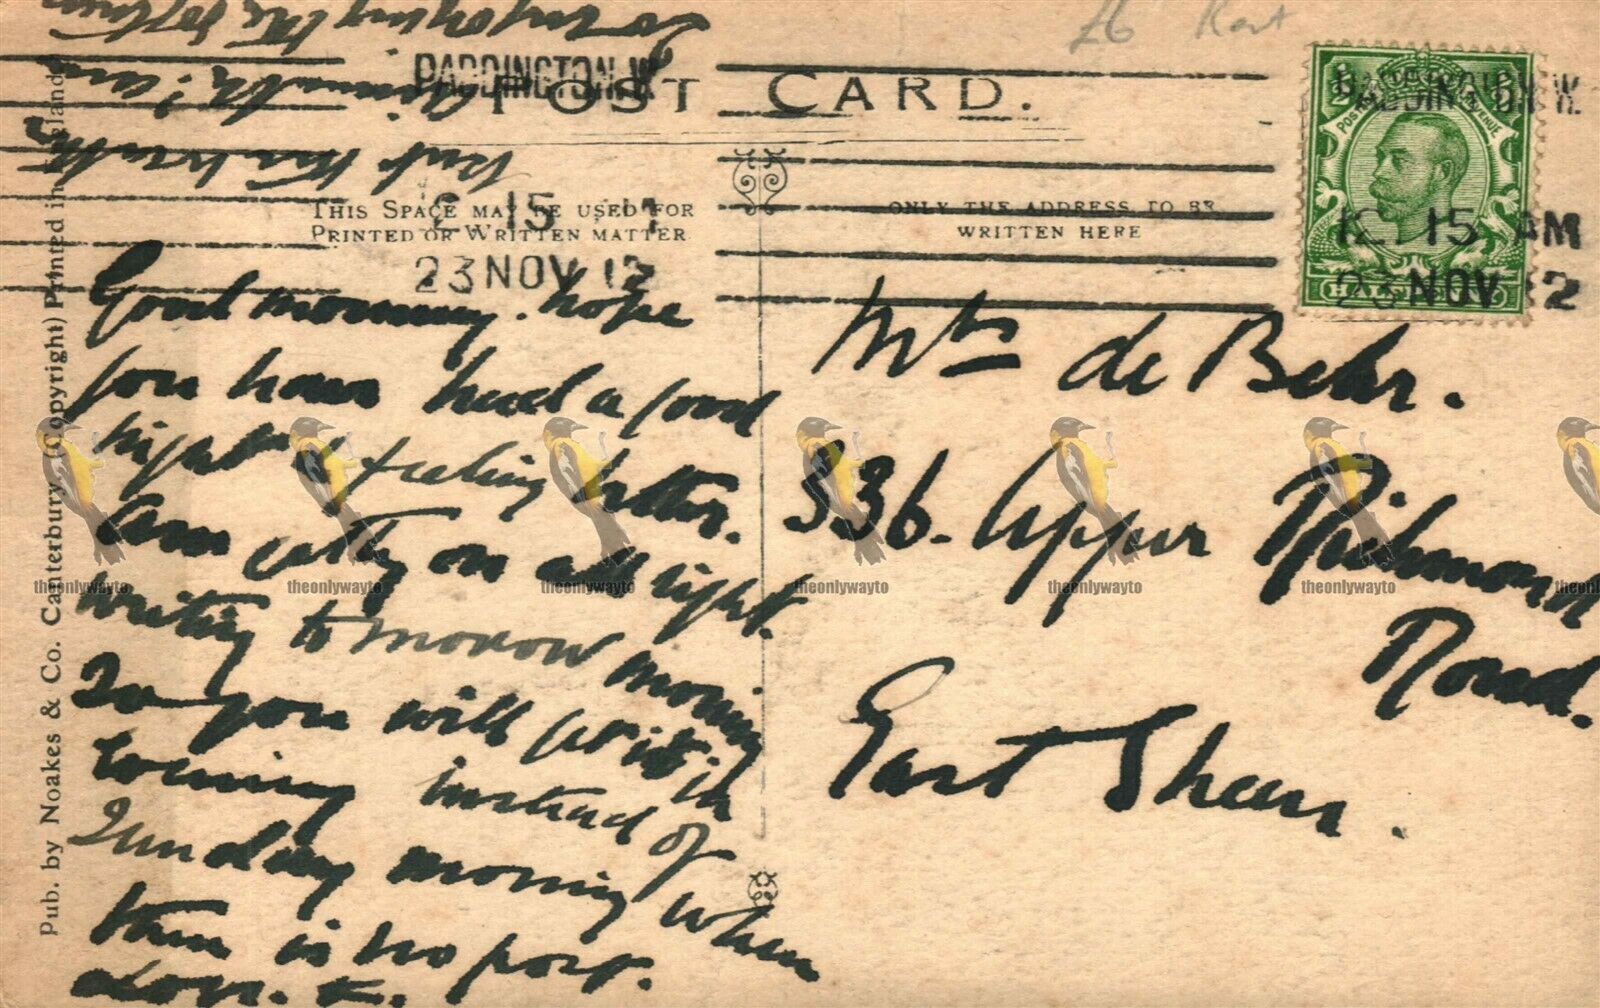 £6 Kent
POST CARD.
PADDINGTON. W.
PADDINGTON. W.
12. 15 AM
23 NOV 12
12. 15 AM
23 NOV 12
THIS SPACE MAY BE USED FOR
PRINTED OR WRITTEN MATTER
ONLY THE ADDRESS TO BE
WRITTEN HERE
Good morning. hope
you have had a good
night & feeling better.
Am getting on all right.
writing tomorrow morning
So you will get it in
evening instead of
Sunday morning when
there is no post.
Love.
Mrs de Behr.
336. Upper Richmond
Road.
East Sheen.
Pub. by Noakes & Co. Canterbury (Copyright) Printed in England
theonlywayto theonlywayto theonlywayto theonlywayto theonlywayto theonlywayto theonlywayto